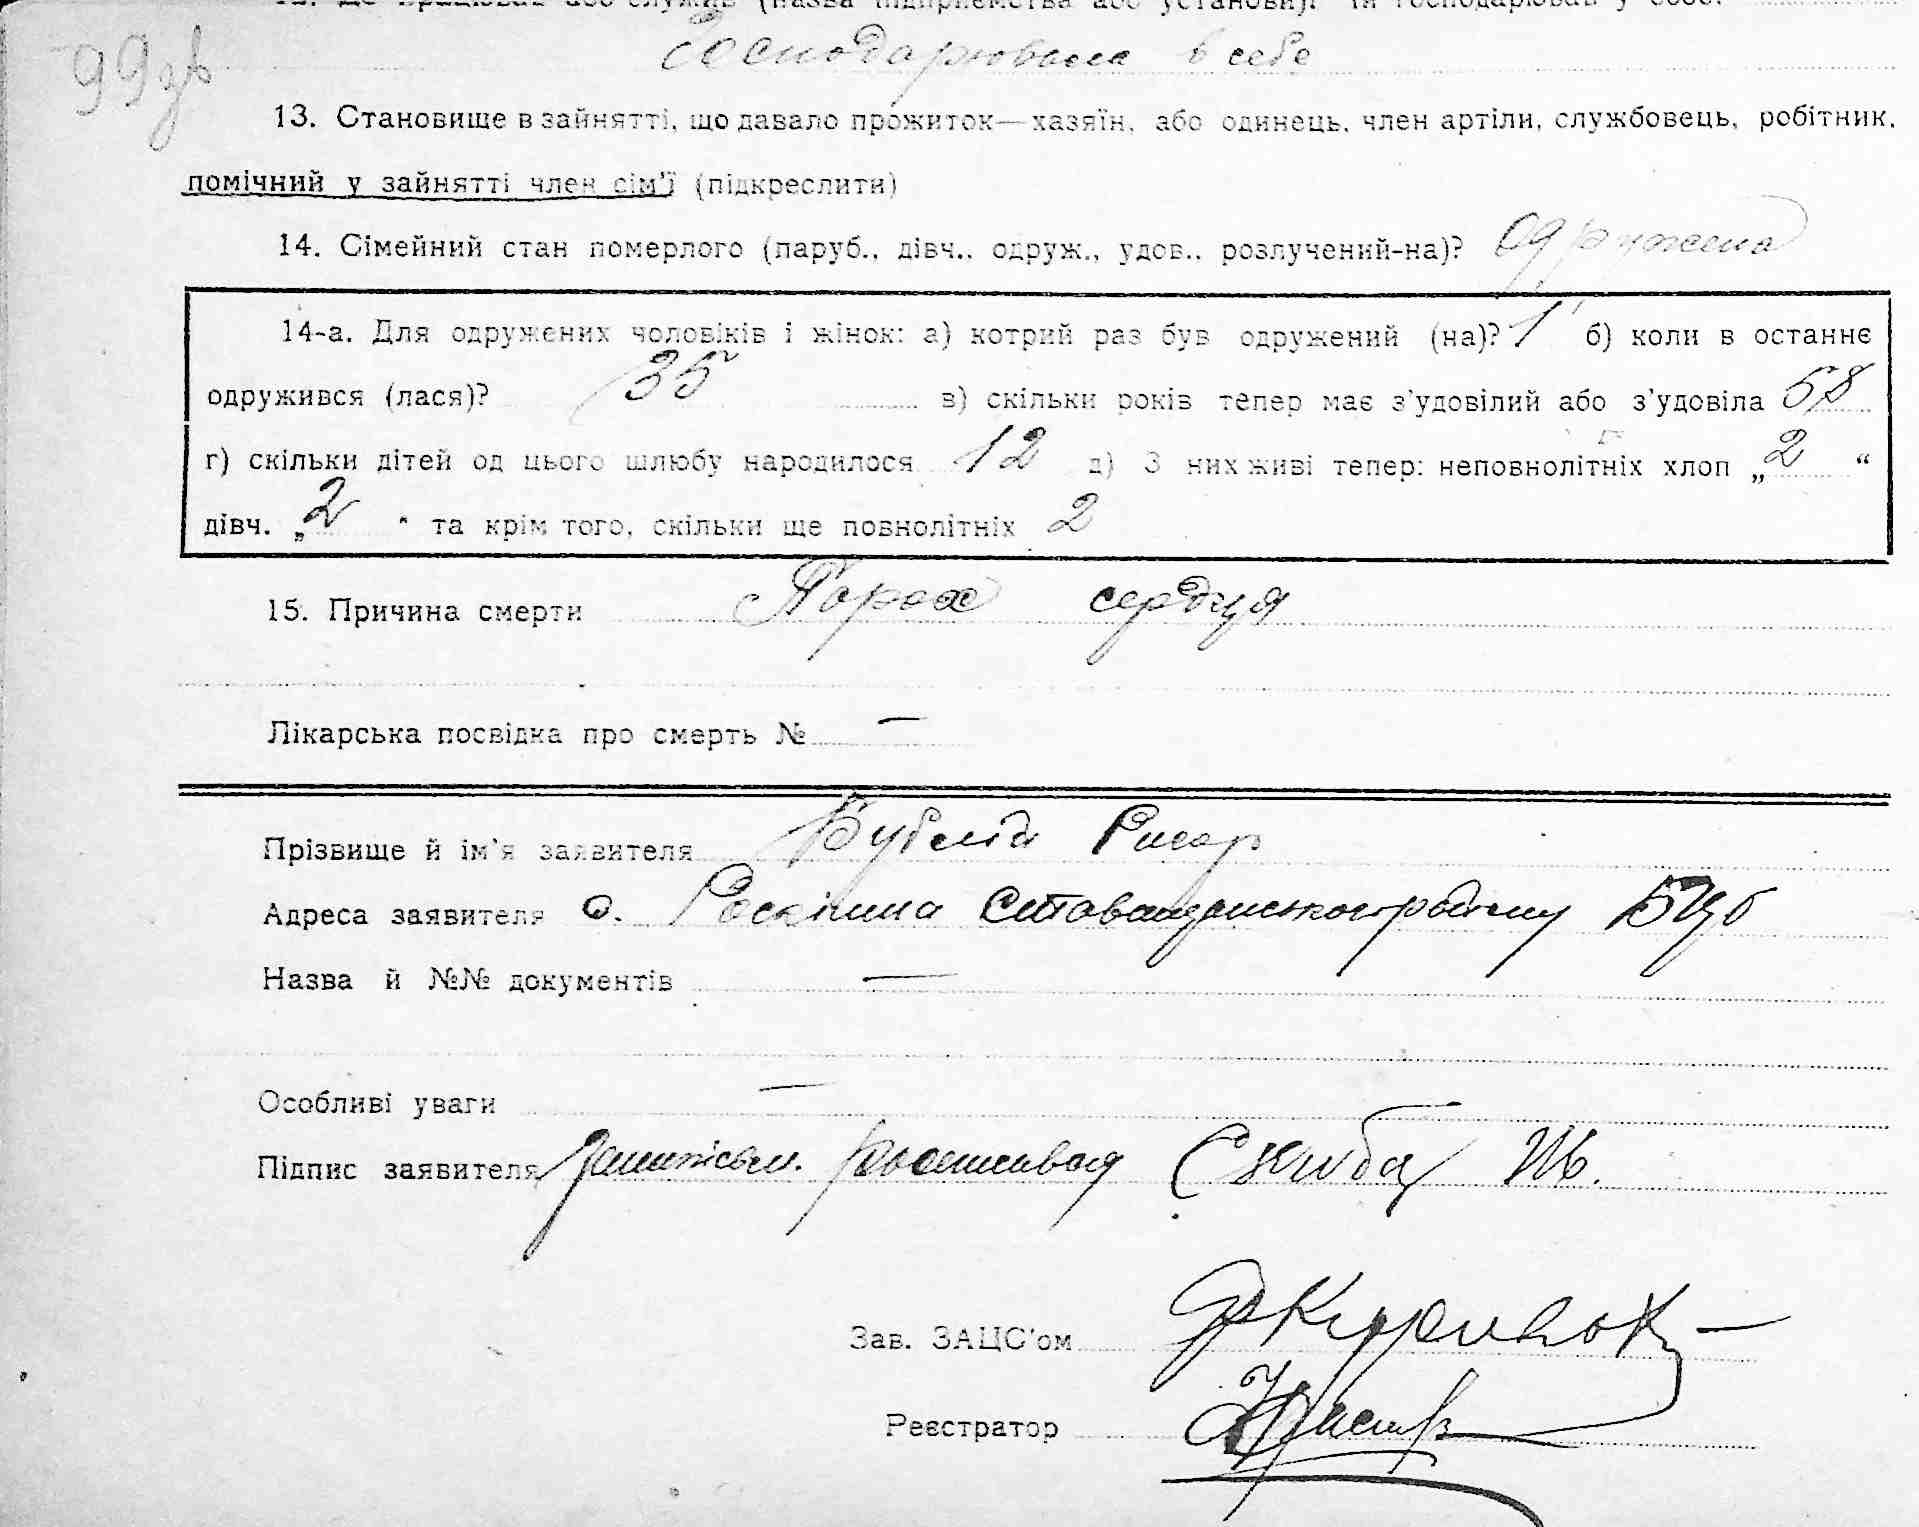 12. Де працював або служив (назва підприємства або установи). Чи господарював у себе.
Господарювала в себе
99зв
13. Становище в зайнятті, що давало прожиток—хазяїн, або одинець, член артіли, службовець, робітник,
помічний у зайнятті член сім'ї (підкреслити)
14. Сімейний стан померлого (паруб., дівч., одруж., удов., розлучений-на)? одружена
14-а. Для одружених чоловіків і жінок: а) котрий раз був одружений (на)? 1 б) коли в останнє
одружився (лася)? 35 в) скільки років тепер має з'удовілий або з'удовіла 58
г) скільки дітей од цього шлюбу народилося 12 д) З них живі тепер: неповнолітніх хлоп „ 2 “
дівч. „ 2 “ та крім того, скільки ще повнолітніх 2
15. Причина смерти Порох сердця
Лікарська посвідка про смерть № —
Прізвище й ім'я заявителя
Адреса заявителя с.
Назва й №№ документів —
Особливі уваги —
Підпис заявителя Скиба
Зав. ЗАЦС'ом
Реєстратор